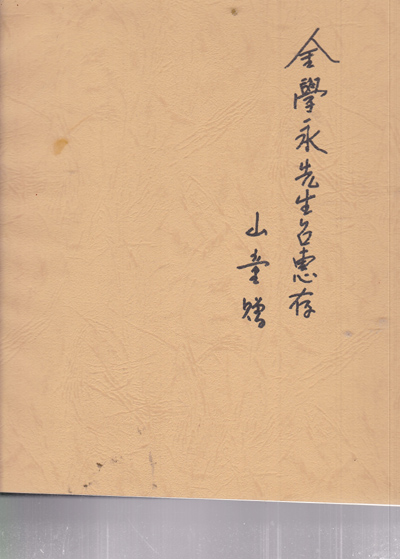 金學永先生台惠存
山童贈